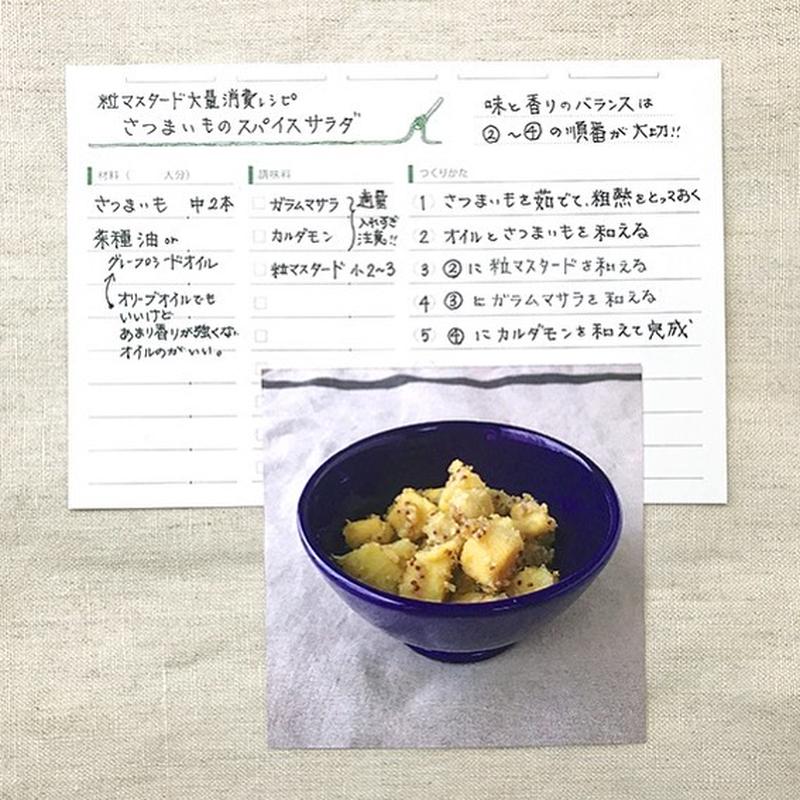 粒マスタード大量消費レシピ
さつまいものスパイスサラダ
味と香りのバランスは
②〜④の順番が大切!!
材料（　　人分）
さつまいも　中2本
菜種油or
グレープシードオイル
オリーブオイルでも
いいけど
あまり香りが強くない
オイルのがいい。
調味料
ガラムマサラ
カルダモン
適量
入れすぎ
注意!!
粒マスタード 小2~3
つくりかた
1 さつまいもを茹でて、粗熱をとっておく
2 オイルとさつまいもを和える
3 ②に粒マスタードを和える
4 ③にガラムマサラを和える
5 ④にカルダモンを和えて完成